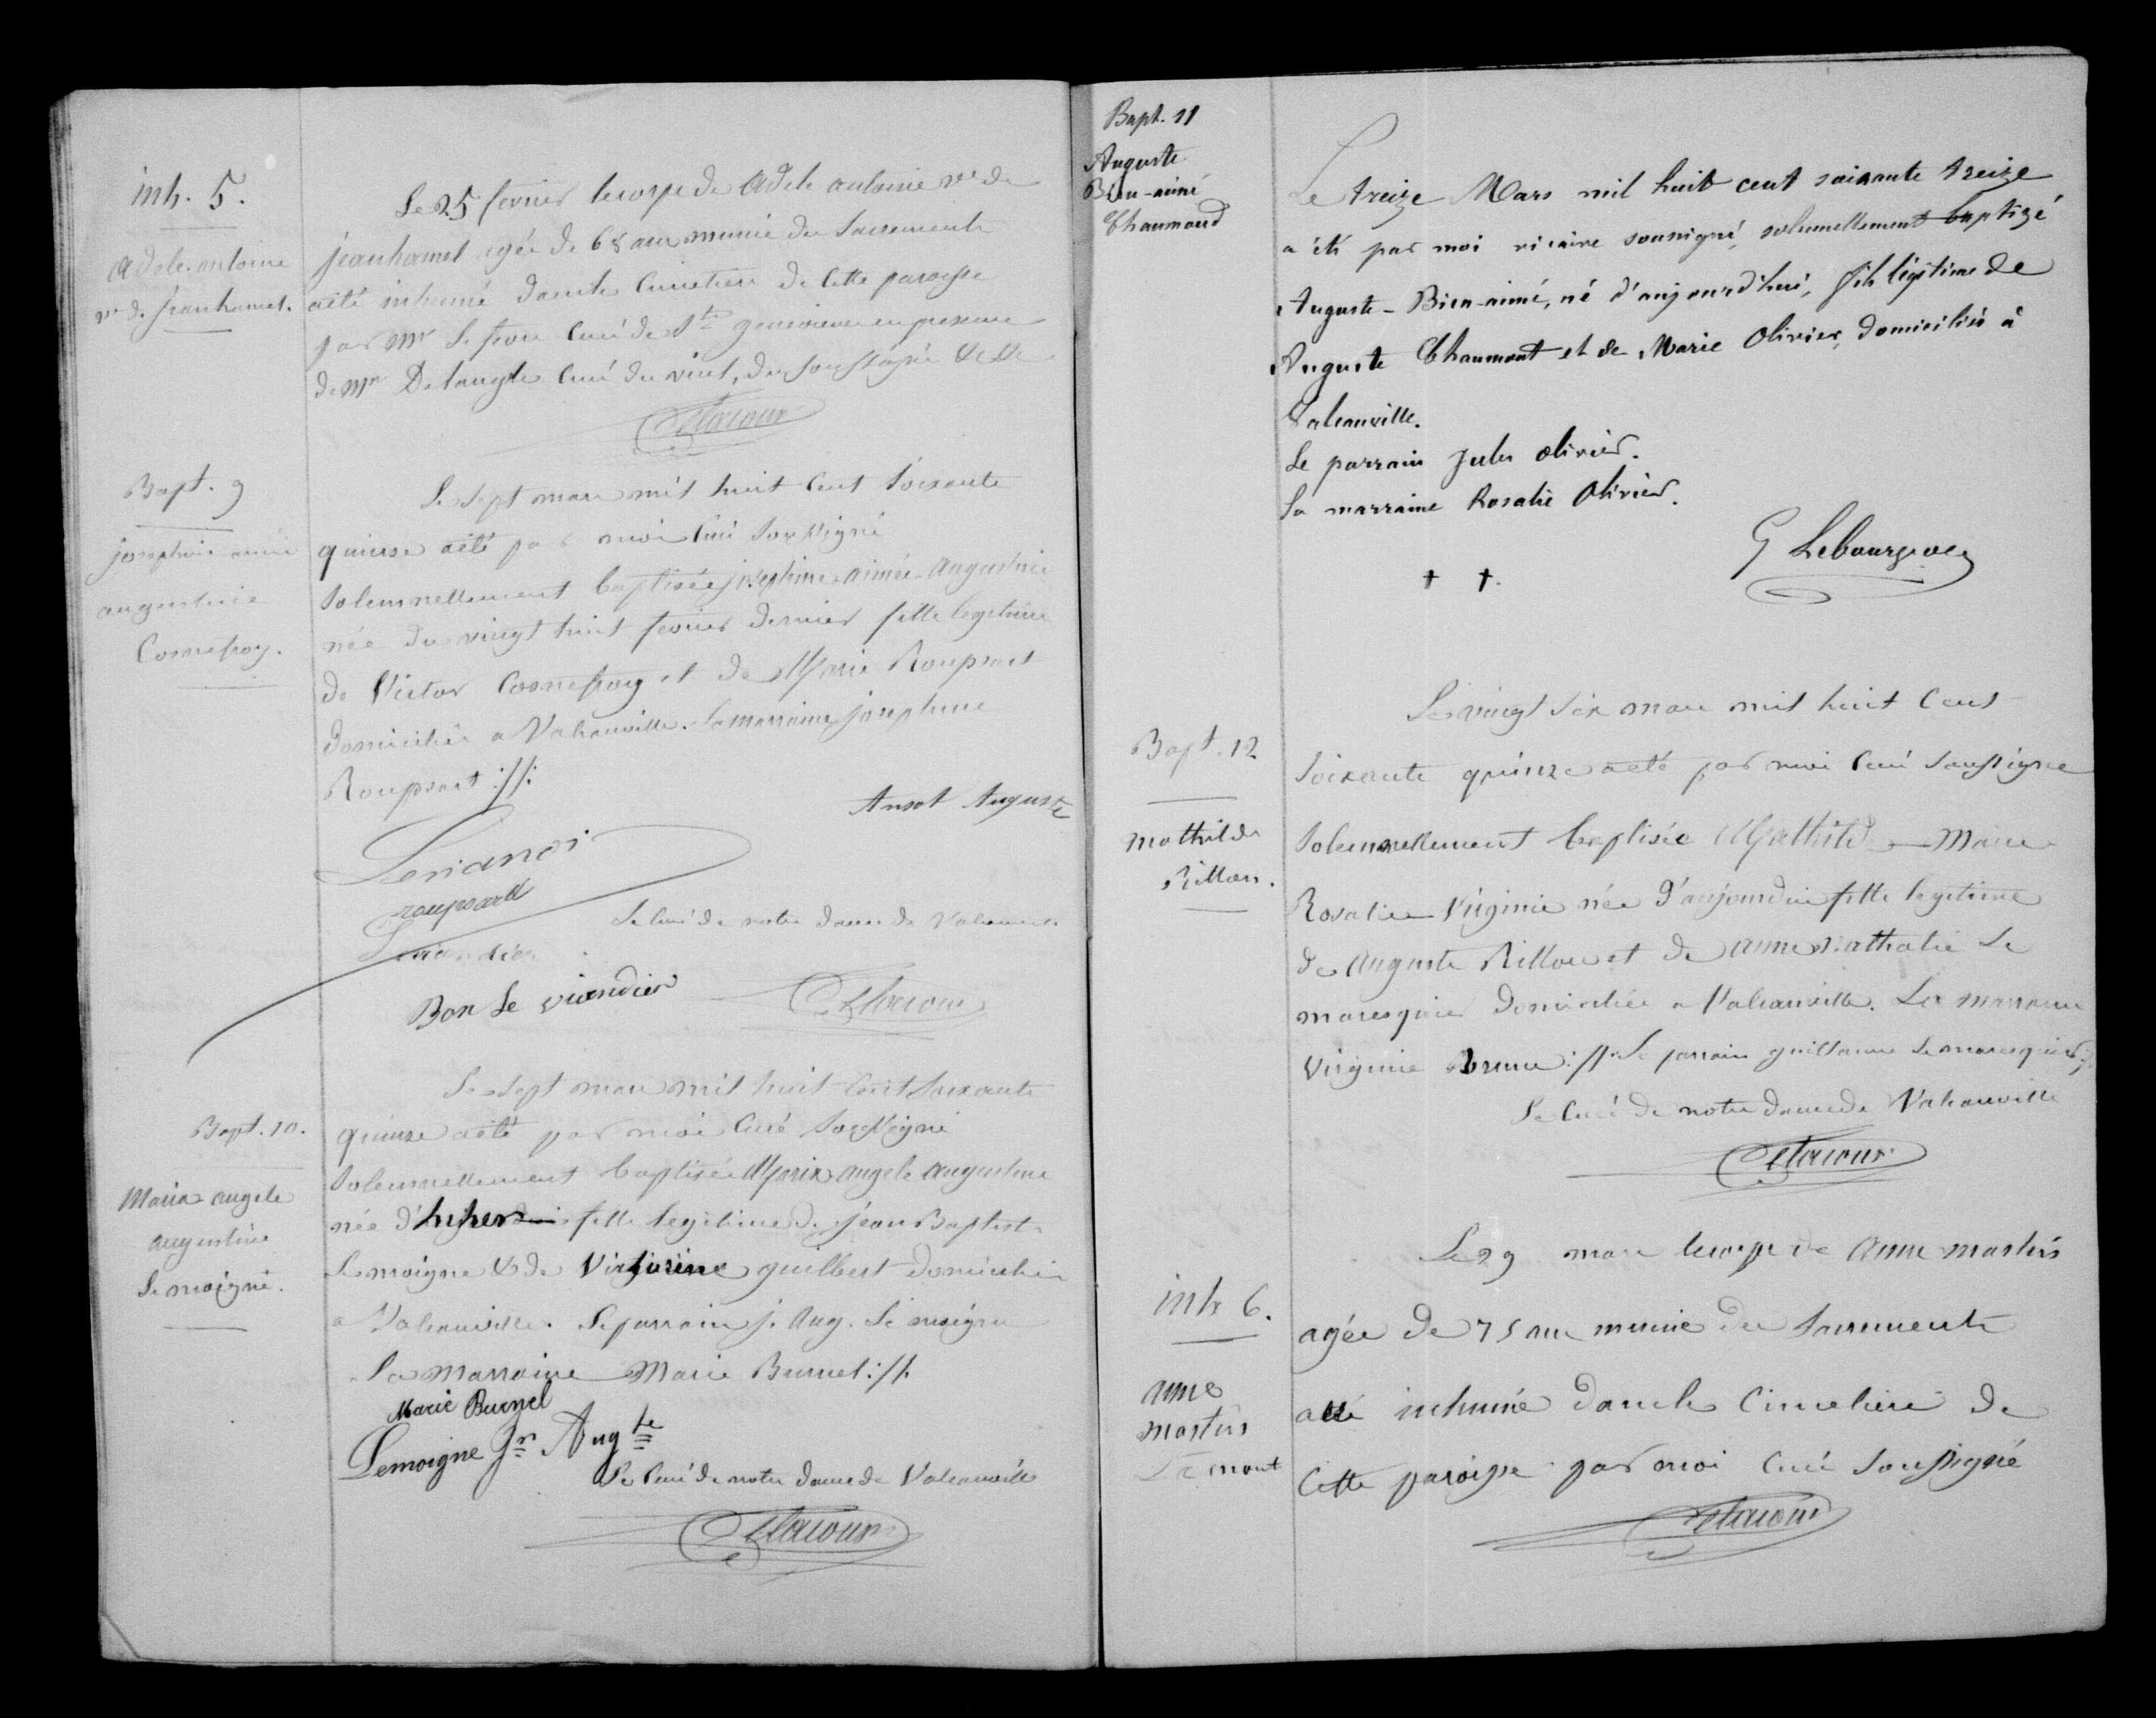 inh. 5.
Adele antoine
ve de jeanhamel.
Le 25 fevrier le corps de Adele antoine ve de
jeanhamel agée de 68 ans munie des Sacrements
aété inhumé dans le Cimetiere de Cette paroisse
par Mr curé de Ste genevieve en presence
de Mr Delangle Curé du vicel, du Soussigné
Delacour
Bapt. 9
josephine aimée
augustine
Cosnefroy.
Le Sept mars mil huit Cent Soixante
quinze aété par moi Curé Soussigné
Solennellement baptisée josephine aimée Augustine
née du vingt huit fevrier dernier fille legitime
de Victor Cosnefroy et de Marie Roupsart
domiciliés a Valcanville. la marraine josephine
Roupsart ://:
Ansot Auguste
roupsard
Le Curé de notre dame de Valcanville
Bon Le viandier
Delacour
Bapt. 10.
Maria angele
augustine
Le moigne.
Le Sept mars mil huit Cent Soixante
quinze aété par moi Curé Soussigné
Solennellement baptisée Maria angele augustine
née d'hier fille legitime de jean Baptiste
Lemoigne & de Victorine guilbert domiciliés
a Valcanville. Le parrain j. Aug. Le moigne
La Marraine Marie Burnel ://.
Marie Burnel
Lemoigne Jn Augte
Le Curé de notre dame de Valcanville
Delacour
Bapt. 11
Auguste
Bien-aimé
Chaumond
Le treize Mars mil huit cent soixante treize
a été par moi vicaire soussigné, solennellement baptizé
Auguste-Bien-aimé, né d'aujourd'hui, fils légitime de
Auguste Chaumont et de Marie Olivier, domiciliés à
Valcanville.
Le parrain Jules Olivier.
La marraine Rosalie Olivier.
G Lebourgeois
+ +.
Bapt. 12
Mathilde
Rillou.
Le vingt Six mars mil huit Cent
Soixante quinze aété par moi Curé Soussigné
Solennellement baptisée Mathilde Marie
Rosalie Virginie née d'aujourdui fille legitime
de Auguste Rillou et de anne Nathalie Le
maresquier domiciliés a Valcanville. La marraine
Virginie Brune ://: Le parrain guillaume Lemaresquier
Le Curé de notre dame de Valcanville
Delacour
inh 6.
anne
mostier
mont
Le 29 mars le corps de Anne mostier
agée de 75 ans munie des Sacrements
aété inhumé dans le Cimetiere de
Cette paroisse par moi Curé Soussigné
Delacour